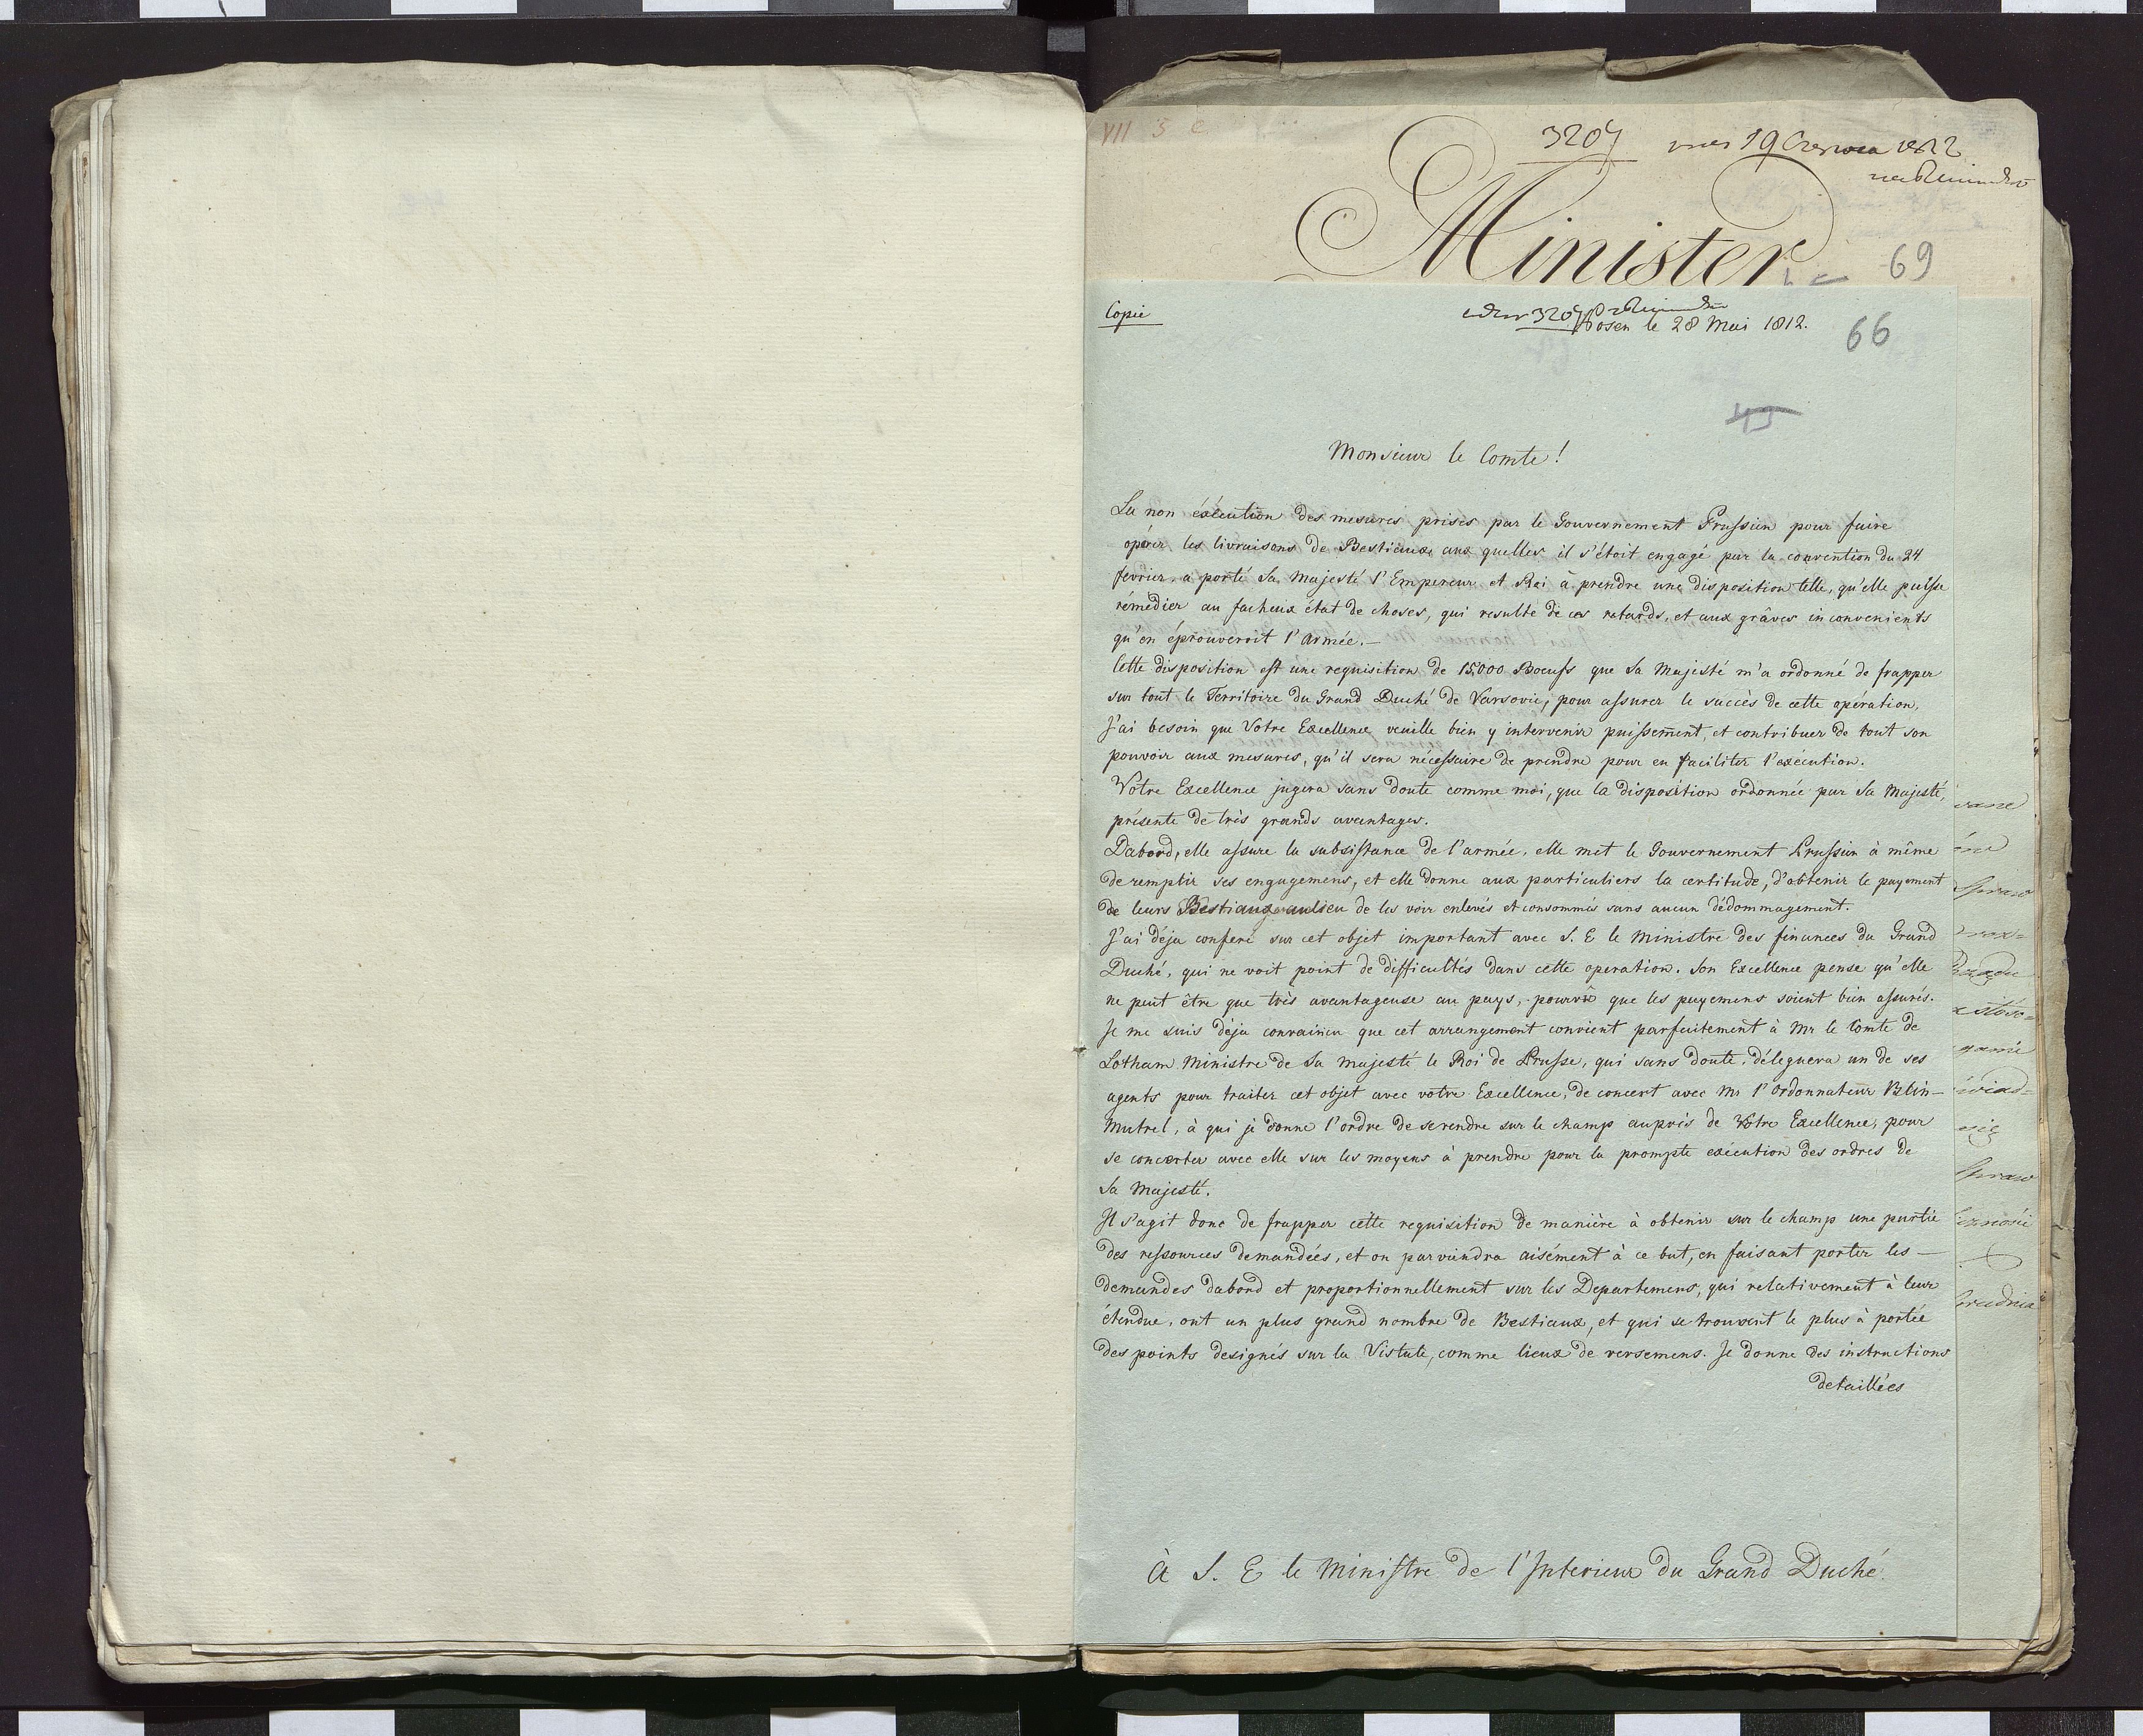 VII 3 c
3207 19 Czerwca 1812
Minister
69
Copie
3207
Posen le 28 Mai 1812.
66
45
Monsieur le Comte!
La non éxécution des mesures prises par le Gouvernement Prussien pour faire
opérer les livraisons de Bestiaux aux quelles il s'étoit engagé par la convention du 24
fevrier, a porté Sa Majesté l'Empereur et Roi à prendre une disposition telle, qu'elle puisse
rémédier au facheux état de choses, qui resulte de ces retards, et aux grâves inconvenients
qu'en éprouveroit l'Armée.—
Cette disposition est une requisition de 15,000 Boeufs que Sa Majesté m'a ordonné de frapper
sur tout le Territoire du Grand Duché de Varsovie, pour assurer le succès de cette opération,
J'ai besoin que Votre Excellence veuille bien y intervenir puissement, et contribuer de tout son
pouvoir aux mesures, qu'il sera nécessaire de prendre pour en faciliter l'exécution.
Votre Excellence jugera sans doute comme moi, que la disposition ordonnée par Sa Majesté,
présente de très grands avantages.
Dabord, elle assure la subsistance de l'armée, elle met le Gouvernement Prussien à même
de remplir ses engagemens, et elle donne aux particuliers la certitude, d'obtenir le payement
de leurs Bestiaux aulieu de les voir enlevés et consommés sans aucun dédommagement.
J'ai déja conferé sur cet objet important avec S. E le Ministre des finances du Grand
Duché, qui ne voit point de difficultés dans cette operation. Son Excellence pense qu'elle
ne peut être que très avantageuse au pays, pourvû que les payemens soient bien assurés.
Je me suis déja convaincu que cet arrangement convient parfaitement à Mr le Comte de
Lotham Ministre de Sa Majesté le Roi de Prusse, qui sans doute, déleguera un de ses
agents pour traiter cet objet avec votre Excellence, de concert avec Mr l'Ordonnateur Blin-
Mutrel, à qui je donne l'ordre de se rendre sur le champ auprès de Votre Excellence, pour
se concerter avec elle sur les moyens à prendre pour la prompte exécution des ordres de
Sa Majesté.
Il s'agit donc de frapper cette requisition de manière à obtenir sur le champ une partie
des ressources demandées, et on parviendra aisément à ce but, en faisant porter les —
demandes dabord et proportionnellement sur les Departemens, qui relativement à leur
étendue, ont un plus grand nombre de Bestiaux, et qui se trouvent le plus à portée
des points designés sur la Vistule, comme lieux de versemens. Je donne des instructions
detaillées
À S. E le Ministre de l'Interieur du Grand Duché.